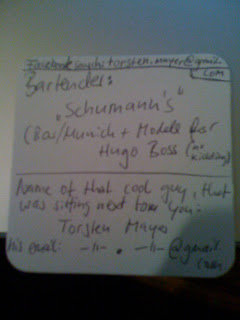 Facebook torsten.mayer@gmail.
com
Bartender:
„Schumann's"
(Bar/Munich + Models for
Hugo Boss (no
kidding)
Name of that cool guy, that
was sitting next to you:
Torsten Mayer
his email: -"- . -"- @gmail.
com